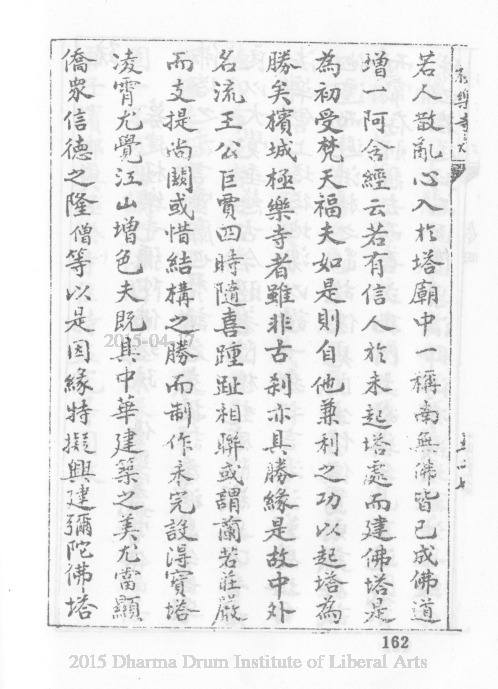 若人散亂心入於塔廟中一稱南無佛皆已成佛道
增一阿含經云若有信人於未起塔處而建佛塔是
為初受梵天福夫如是則自他兼利之功以起塔為
勝矣檳城極樂寺者雖非古剎亦具勝緣是故中外
名流王公巨賈四時隨喜踵趾相聯或謂蘭若莊嚴
而支提尚闕或惜結構之勝而制作未完設得寶塔
凌霄尤覺江山增色夫既具中華建築之美尤當顯
僑眾信德之隆僧等以是因緣特擬興建彌陀佛塔
162
2015 Dharma Drum Institute of Liberal Arts